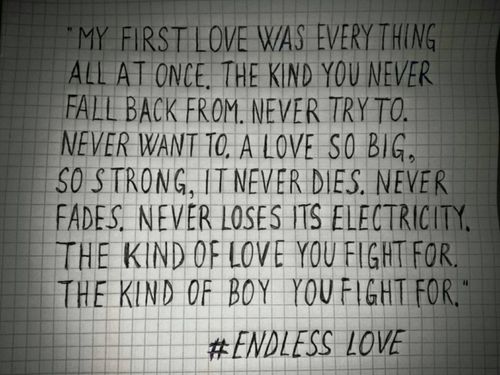 "MY FIRST LOVE WAS EVERYTHING
ALL AT ONCE. THE KIND YOU NEVER
FALL BACK FROM. NEVER TRY TO.
NEVER WANT TO. A LOVE SO BIG,
SO STRONG, IT NEVER DIES. NEVER
FADES. NEVER LOSES ITS ELECTRICITY.
THE KIND OF LOVE YOU FIGHT FOR.
THE KIND OF BOY YOU FIGHT FOR."
#ENDLESS LOVE